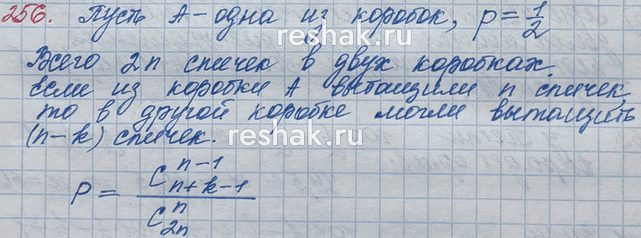 256. Пусть А - одна из коробок, p = 1/2
reshak.ru
Всего 2n спичек в двух коробках.
Если из коробки А вытащили n спичек,
то в другой коробке могли вытащить
(n-k) спичек.
reshak.ru
P = C_{n+k-1}^{n-1} / C_{2n}^{n}